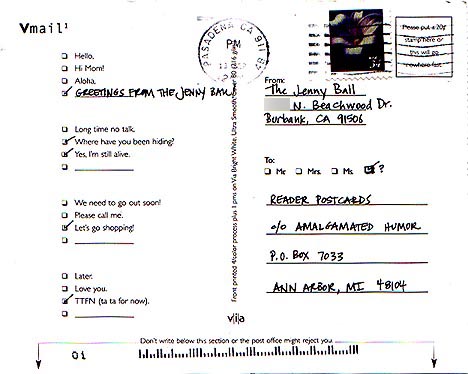 Vmail¹
Hello,
Hi Mom!
Aloha,
GREETINGS FROM THE JENNY BALL
Long time no talk.
Where have you been hiding?
Yes, I'm still alive.
We need to go out soon!
Please call me.
Let's go shopping!
Later.
Love you.
TTFN (ta ta for now).
Front printed 4/color process plus 1 pms on Via Bright White, Ultra Smooth
PASADENA CA 911
PM
Please put a 20¢
stamp here or
this will go
nowhere fast.
From:
The Jenny Ball
N. Beachwood Dr.
Burbank, CA 91506
To:
Mr Mrs. Ms. ?
READER POSTCARDS
c/o AMALGAMATED HUMOR
P.O. BOX 7033
ANN ARBOR, MI 48104
via
Don't write below this section or the post office might reject you.
01